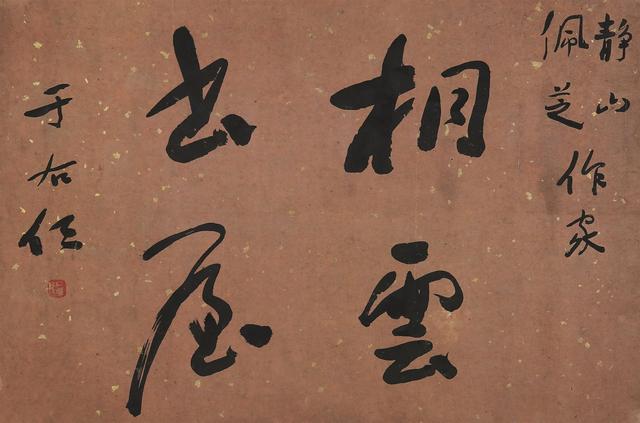 静山
佩芝
作家
相雲
书屋
于右任